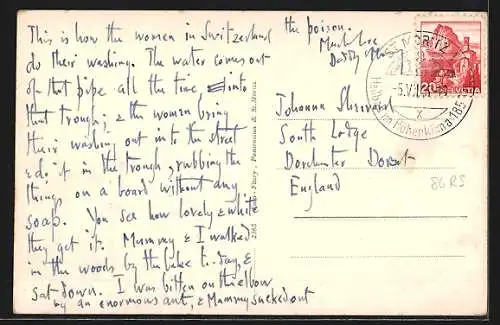 This is how the women in Switzerland
do their washing. The water comes out
of that pipe all the time into
that trough; & the women bring
their washing out into the street
& do it in the trough, rubbing the
things on a board without any
soap. You see how lovely & white
they get it. Mummy & I walked
in the woods by the lake to-day, &
sat down. I was bitten on the elbow
by an enormous ant, & Mummy sucked out
the poison.
Much love
Daddy
Johanna
South Lodge
Dorchester Dorset
England
86 RS
Panorama & St. Moritz
ST. MORITZ
-5.V
X
1856
20
HELVETIA